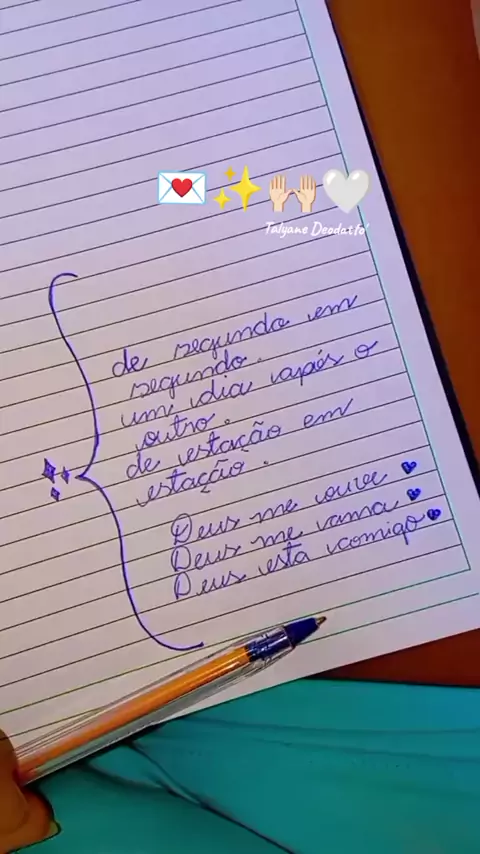 Talyane Deodatto'
de segundo em
segundo.
um dia após o
outro.
de estação em
estação.
Deus me ouve
Deus me ama
Deus esta comigo